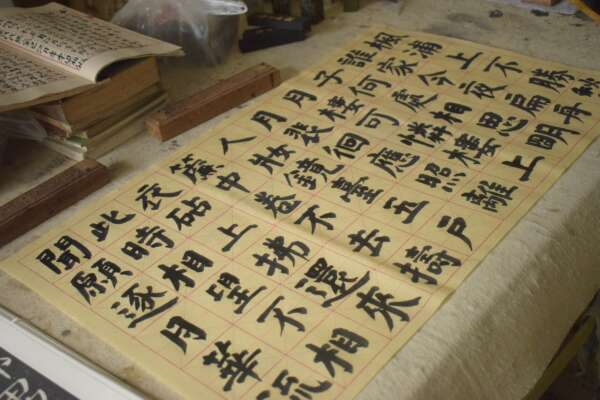 楓浦上不勝
誰家今夜扁舟
子何處相思明
月樓可憐樓上
月裴徊應照離
人妝鏡臺玉戶
簾中卷不去擣
衣砧上拂還來
此時相望不相
聞願逐月華流